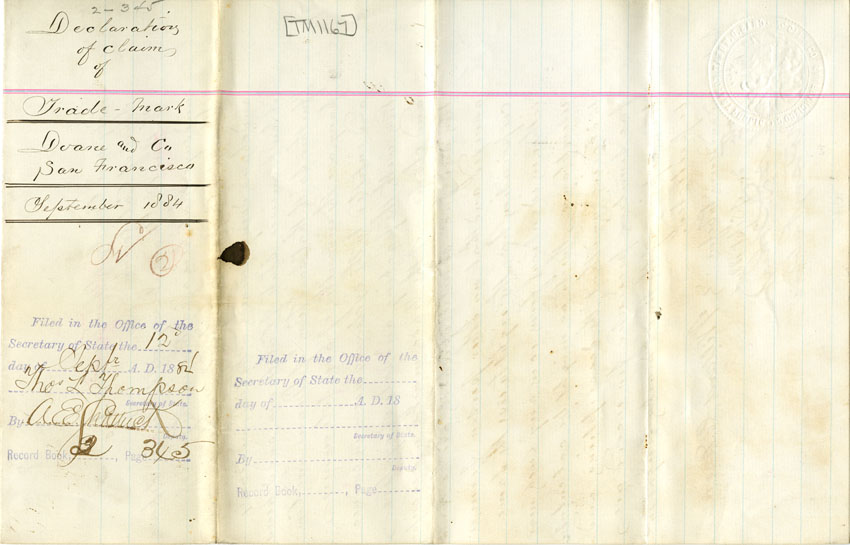 2-345
Declaration
of Claim
of
Trade-Mark
Doane and Co
San Francisco
September 1884
No
2
Filed in the Office of the
Secretary of State the 12
day of Sept A. D. 1884
Thos L Thompson
Secretary of State.
By A. E.
Deputy.
Record Book 2, Page 345
[TM1167]
Filed in the Office of the
Secretary of State the
day of A. D. 18
Secretary of State.
By
Deputy.
Record Book, , Page